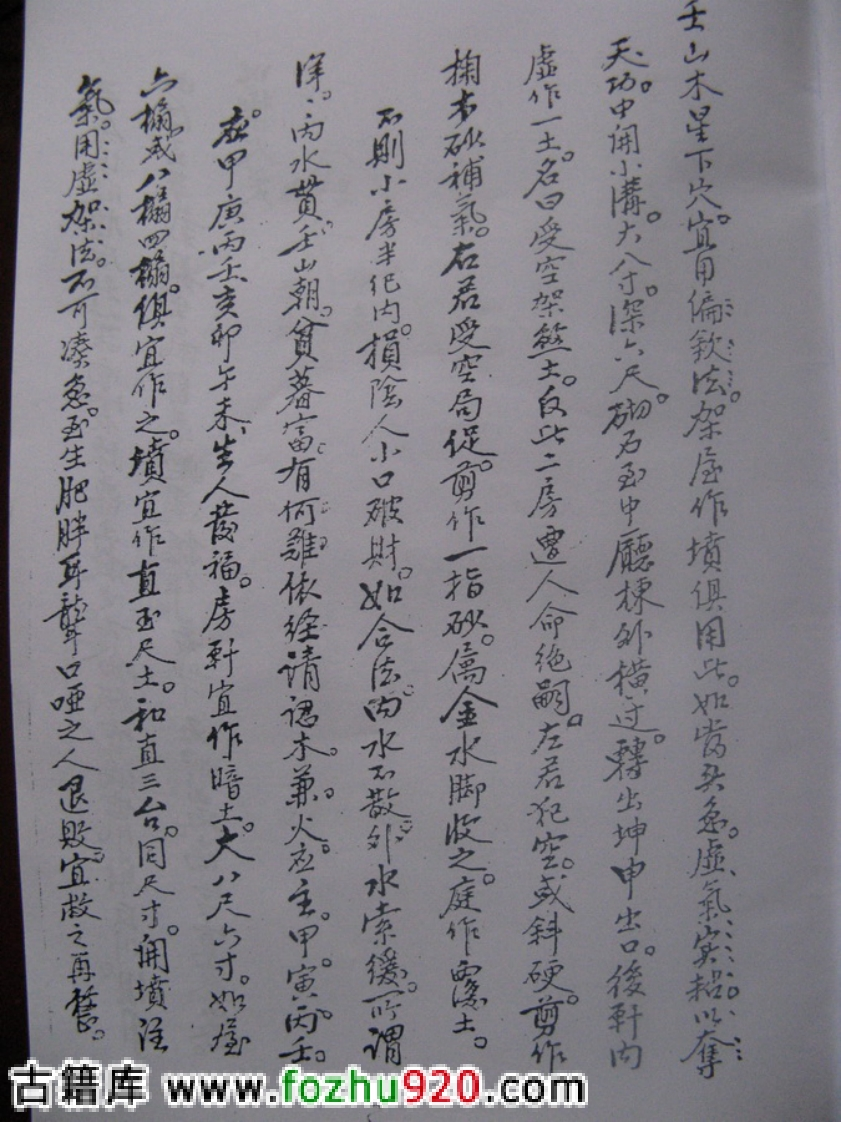 壬山木星下穴。宜用偏欹法。架屋作墳俱用此。如當突急。虛氣實粘。以奪
天功。中開小溝。大八寸。深六尺。砌石至中廳棟外橫过。轉出坤申出口。後軒內
虛作一土。名曰受空架煞土。反此二房遭人命絶嗣。左若犯空。或斜硬。剪作
掬木砂補氣。右若受空局促。剪作一指砂。屬金水脚收之。庭作覆土。
不則小房半纪內。損陰人小口破財。如合法。內水不散。外水索緩。所謂
洋洋丙水貫。壬山朝。貧暮富有何難。依经請認木。兼火应。主。甲寅丙壬。
应甲庚丙壬亥卯午未生人發福。房軒宜作暗土。大八尺六寸。如屋
六榀。或八榀四榀。俱宜作之。墳宜作直至尺土。和直三台。同尺寸。開墳注
氣。用虛架法。不可湊急。至生肥胖耳聾口啞之人退敗。宜故之再整。
古籍库 www.fozhu920.com